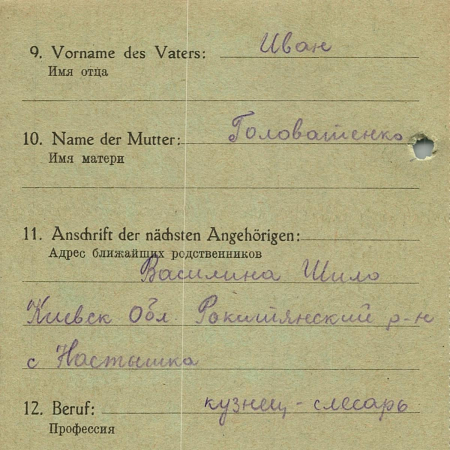 9. Vorname des Vaters: Иван
Имя отца
10. Name der Mutter: Головатенко
Имя матери
11. Anschrift der nächsten Angehörigen:
Адрес ближайших родственников
Василина Шило
Киевск Обл. Рокитянский р-н
с Настышка
12. Beruf: кузнец - слесарь
Профессия